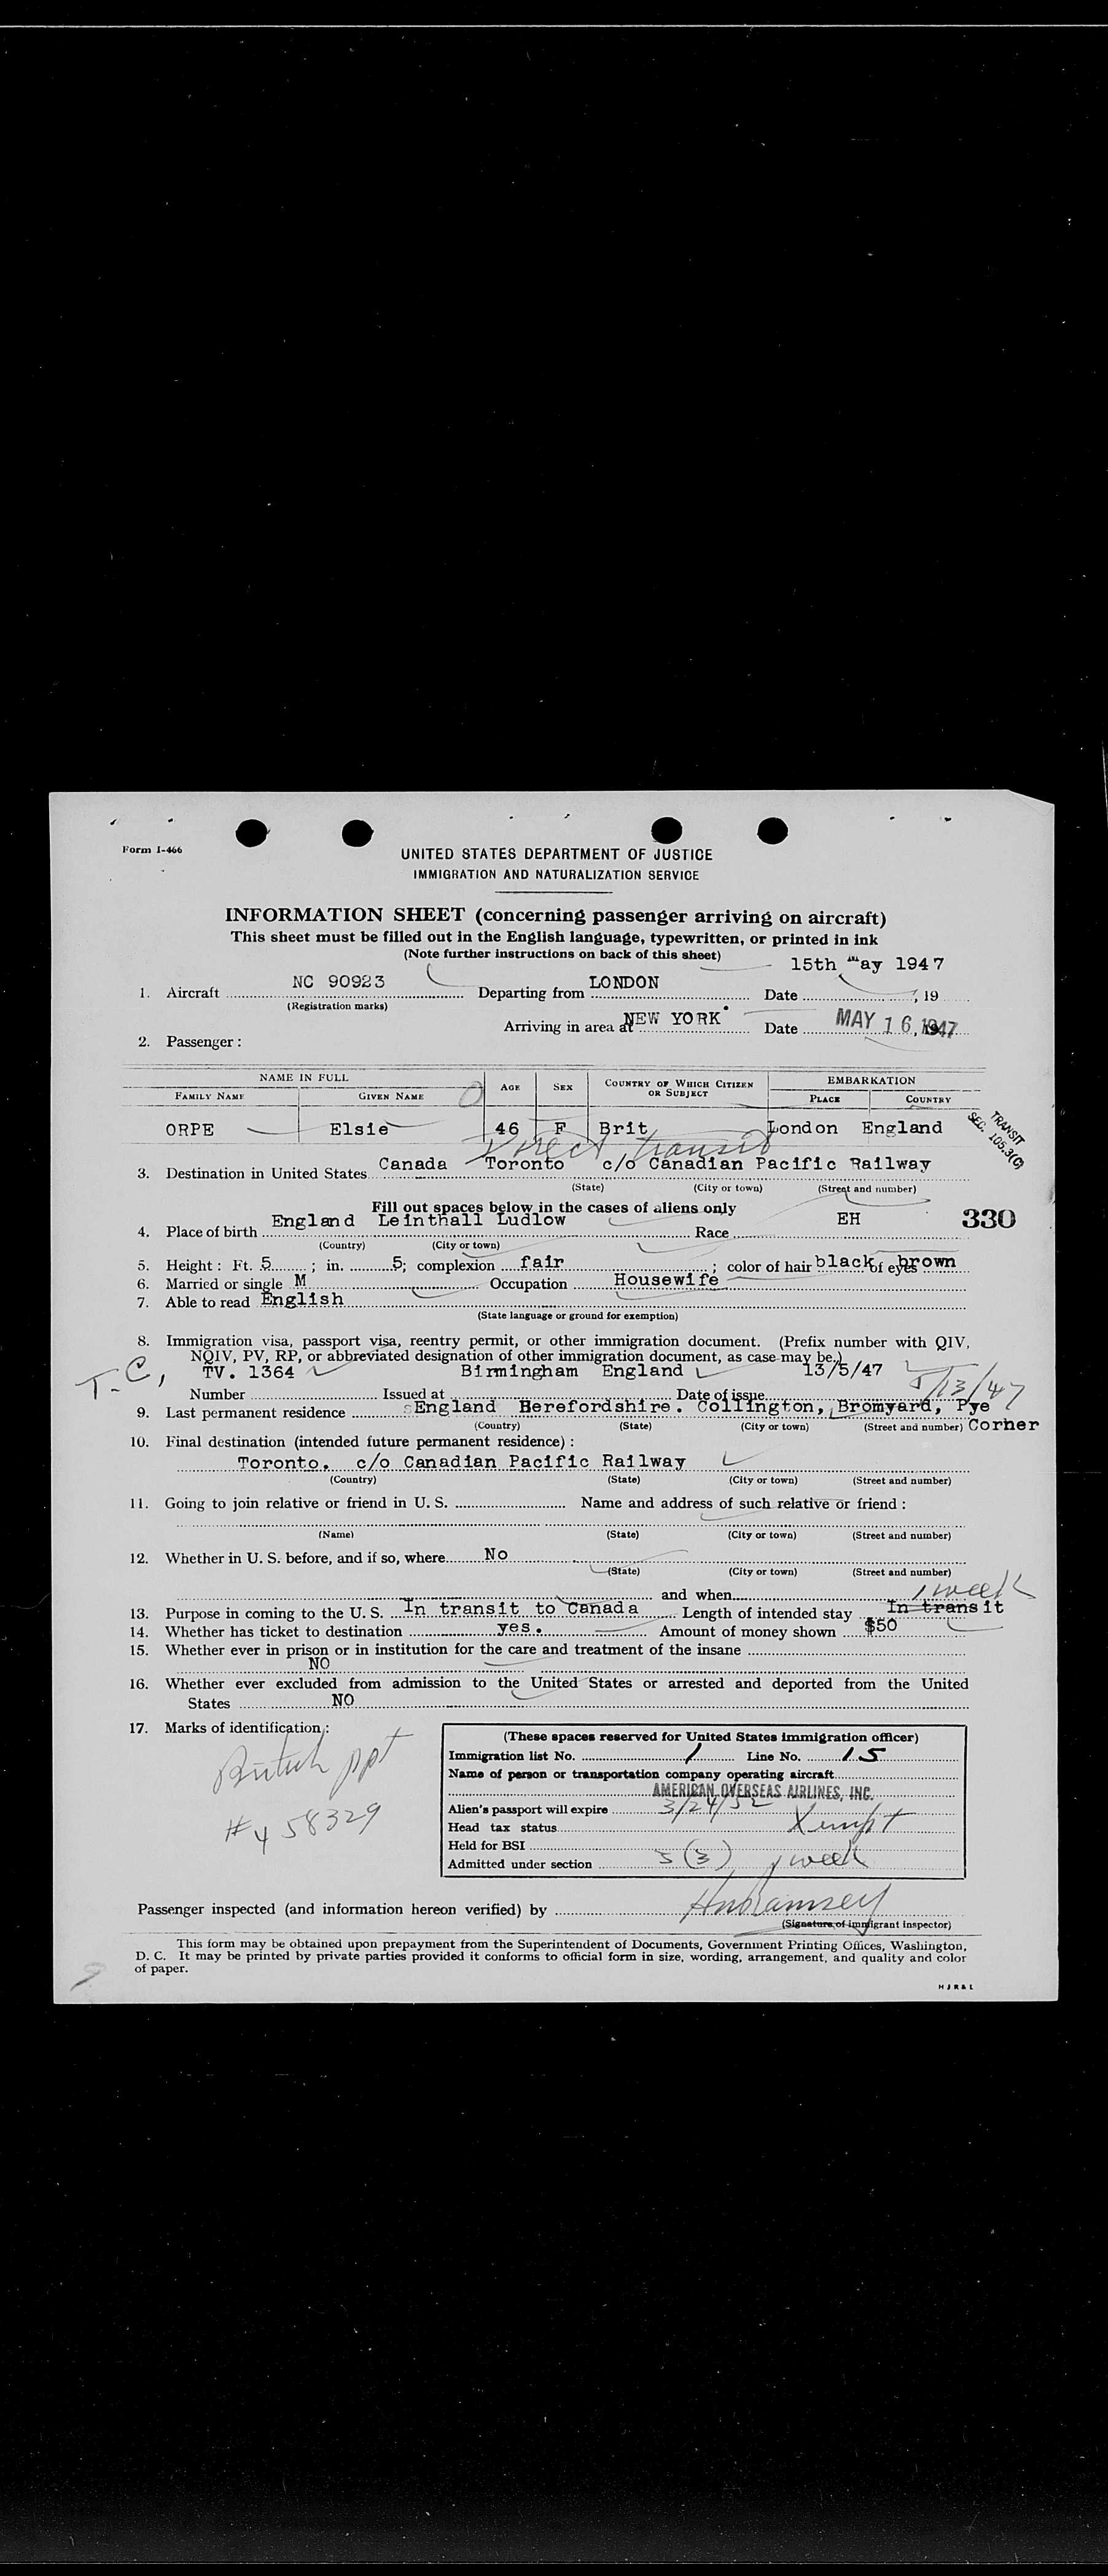 Form I-466
UNITED STATES DEPARTMENT OF JUSTICE
IMMIGRATION AND NATURALIZATION SERVICE
INFORMATION SHEET (concerning passenger arriving on aircraft)
This sheet must be filled out in the English language, typewritten, or printed in ink
(Note further instructions on back of this sheet)
15th May 1947
1. Aircraft NC 90923 Departing from LONDON Date , 19
(Registration marks)
Arriving in area at NEW YORK Date MAY 16, 1947
2. Passenger :
NAME IN FULL AGE SEX COUNTRY OF WHICH CITIZEN OR SUBJECT EMBARKATION
FAMILY NAME GIVEN NAME PLACE COUNTRY
ORPE Elsie 46 F Brit London England
TRANSIT
SEC. 105.3(C)
Direct transit
3. Destination in United States Canada Toronto c/o Canadian Pacific Railway
(State) (City or town) (Street and number)
Fill out spaces below in the cases of aliens only
4. Place of birth England Leinthall Ludlow Race EH 330
(Country) (City or town)
5. Height : Ft. 5 ; in. 5; complexion fair ; color of hair black of eyes brown
6. Married or single M Occupation Housewife
7. Able to read English
(State language or ground for exemption)
8. Immigration visa, passport visa, reentry permit, or other immigration document. (Prefix number with QIV,
NQIV, PV, RP, or abbreviated designation of other immigration document, as case may be.)
T.C, TV. 1364 Birmingham England 13/5/47 5/13/47
Number Issued at Date of issue
9. Last permanent residence England Berefordshire. Collington, Bromyard, Pye
(Country) (State) (City or town) (Street and number) Corner
10. Final destination (intended future permanent residence) :
Toronto. c/o Canadian Pacific Railway
(Country) (State) (City or town) (Street and number)
11. Going to join relative or friend in U. S. Name and address of such relative or friend :
(Name) (State) (City or town) (Street and number)
12. Whether in U. S. before, and if so, where No
(State) (City or town) (Street and number)
and when 1 week
13. Purpose in coming to the U. S. In transit to Canada Length of intended stay In transit
14. Whether has ticket to destination yes. Amount of money shown $50
15. Whether ever in prison or in institution for the care and treatment of the insane
NO
16. Whether ever excluded from admission to the United States or arrested and deported from the United
States NO
17. Marks of identification :
British ppt
# 458329
(These spaces reserved for United States immigration officer)
Immigration list No. 1 Line No. 15
Name of person or transportation company operating aircraft
AMERICAN OVERSEAS AIRLINES, INC.
Alien's passport will expire 3/24/52
Head tax status Xempt
Held for BSI
Admitted under section 3(3) 1 week
Passenger inspected (and information hereon verified) by Ramsey
(Signature of immigrant inspector)
This form may be obtained upon prepayment from the Superintendent of Documents, Government Printing Offices, Washington,
D. C. It may be printed by private parties provided it conforms to official form in size, wording, arrangement, and quality and color
of paper.
H J R & L